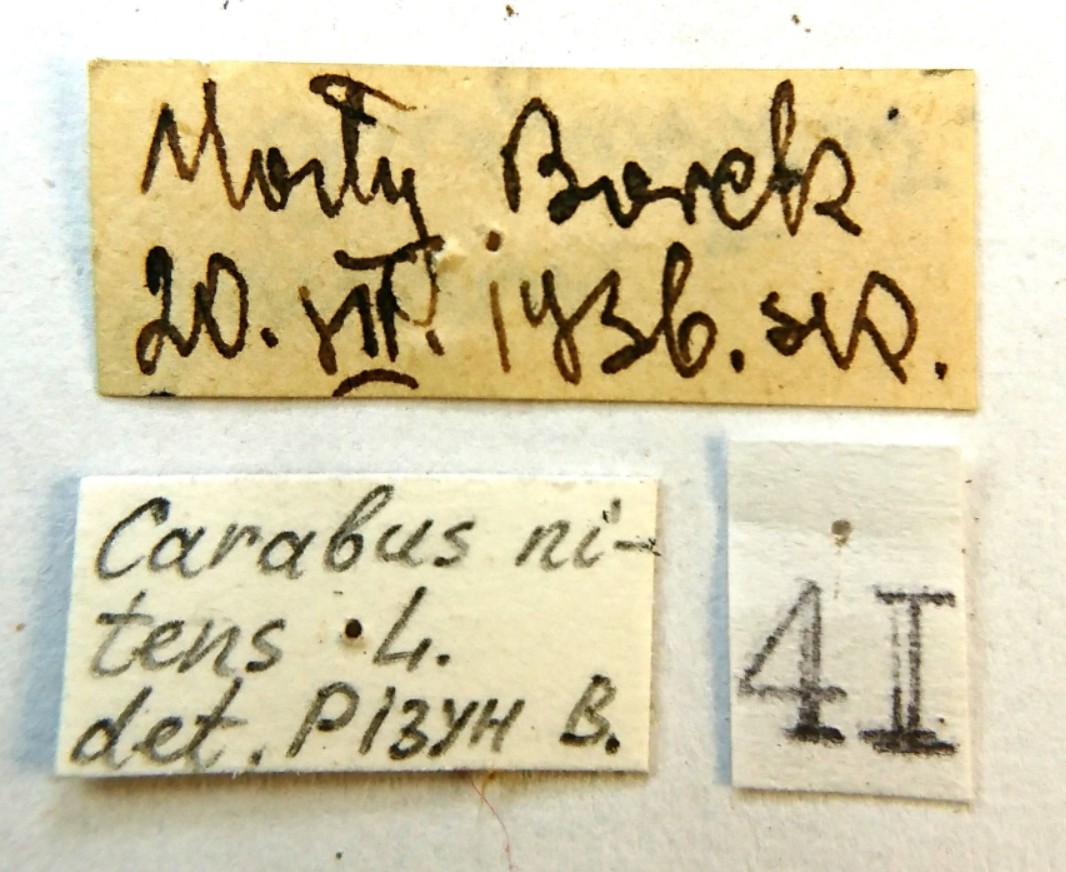 Mosty Borek
20. VII. 1936.
Carabus ni-
tens L.
det. Різун В.
4I